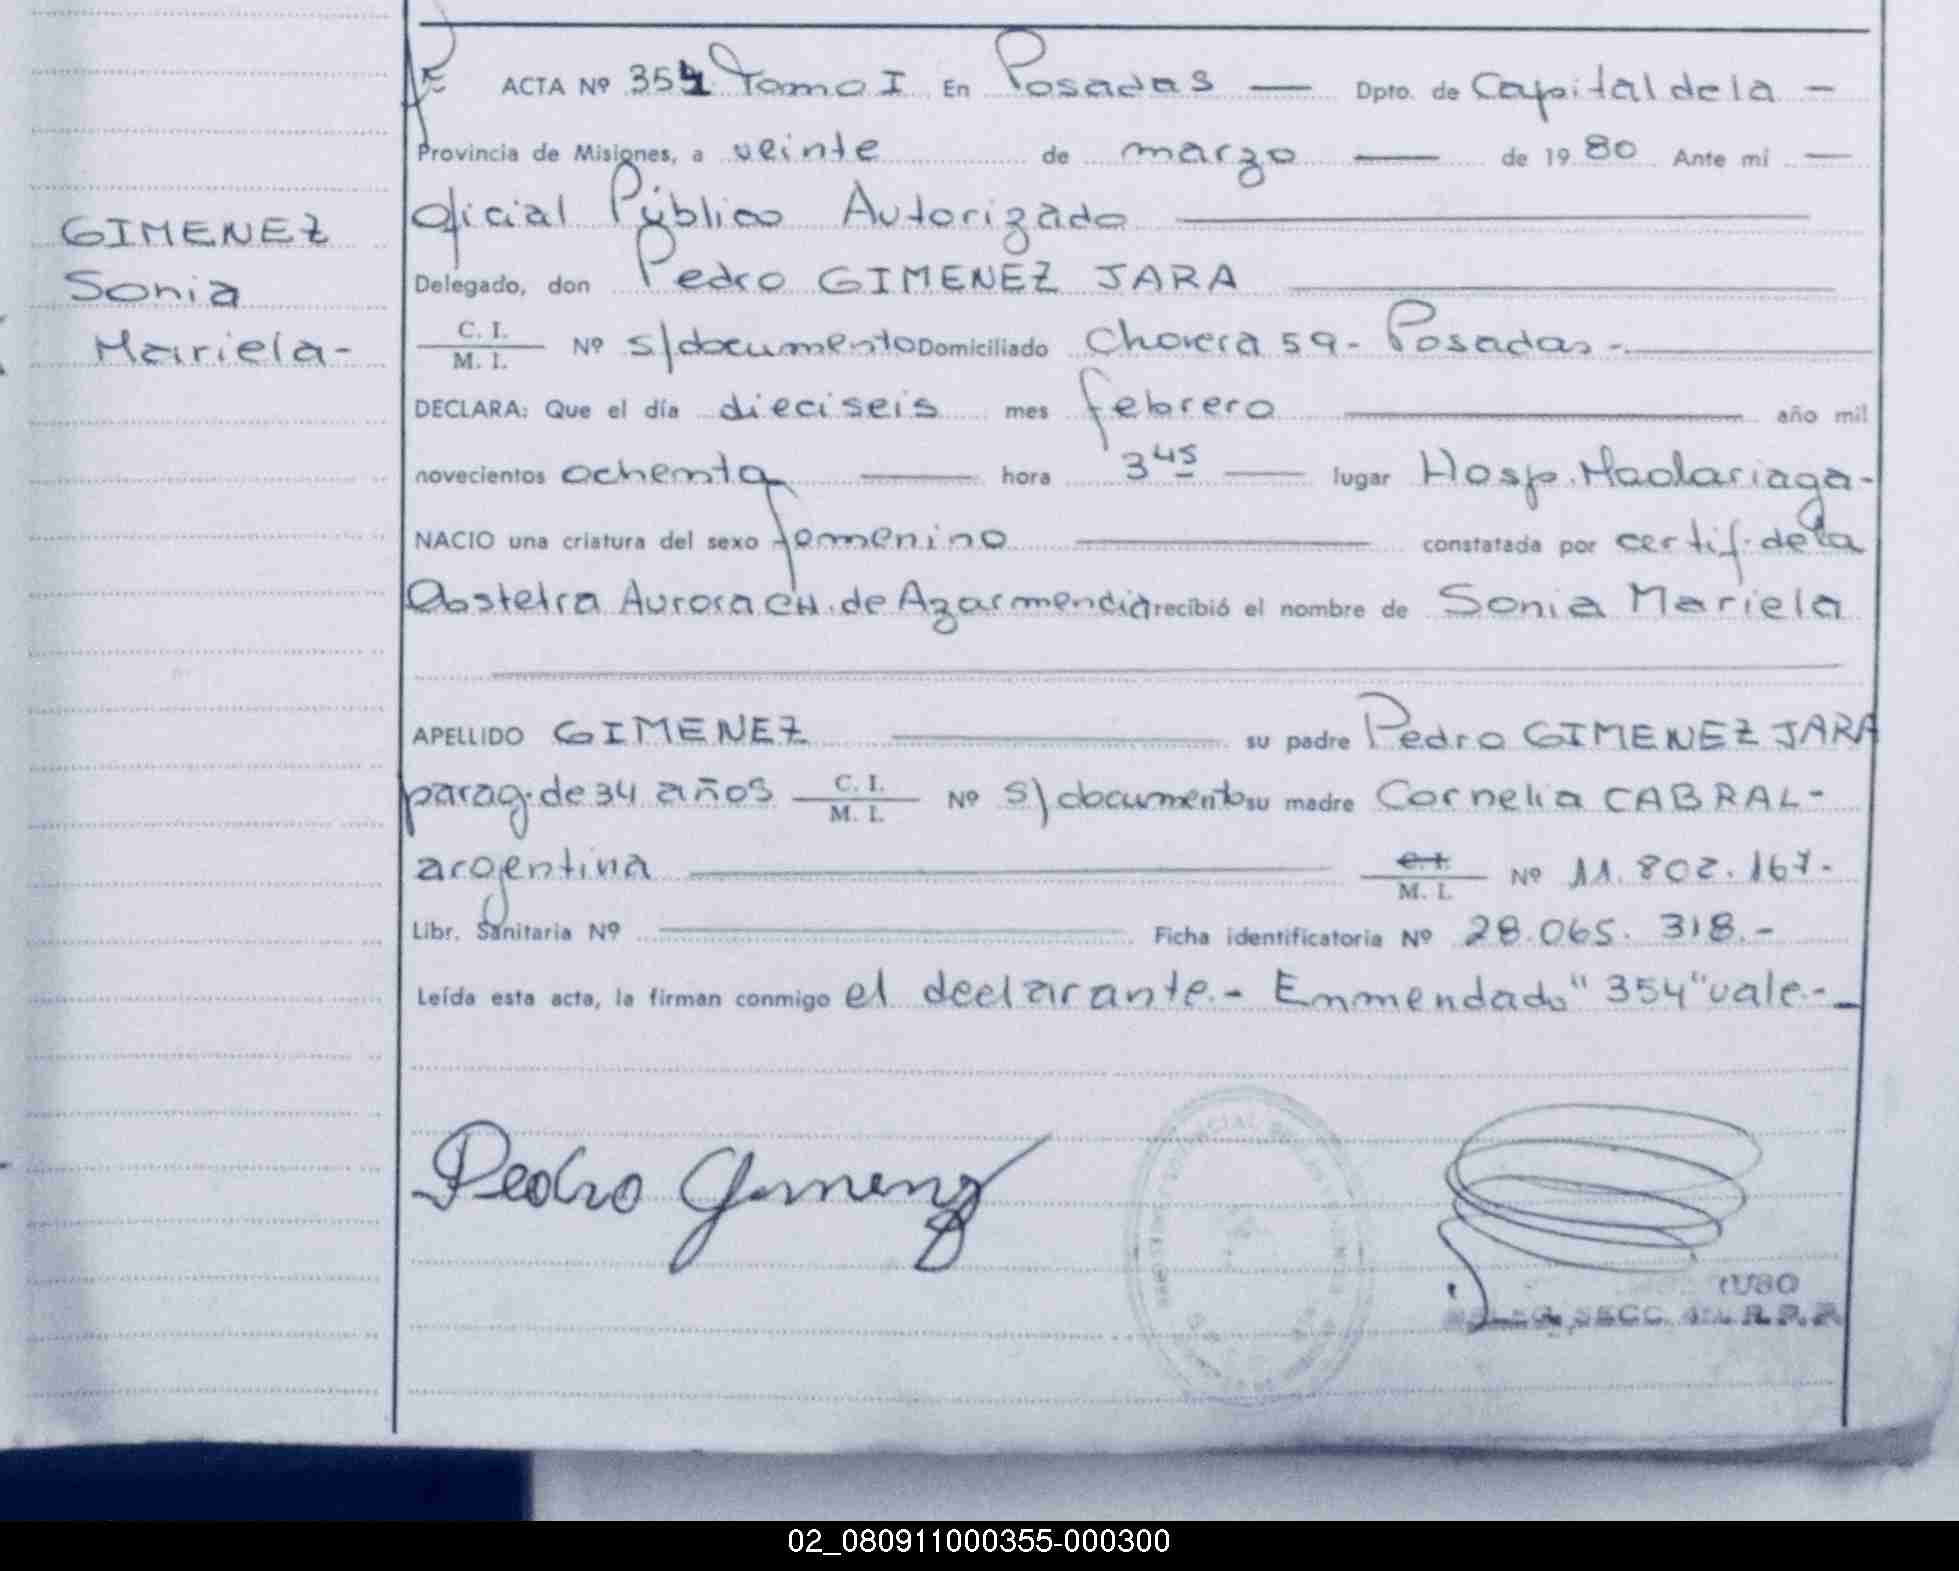 ACTA Nº 354 Tomo I En Posadas — Dpto. de Capital de la –
Provincia de Misiones, a veinte de marzo — de 1980 Ante mi —
Oficial Público Autorizado
GIMENEZ
Sonia
Mariela-
Delegado, don Pedro GIMENEZ JARA
C. I.
M. I.
Nº s/documento Domiciliado 59- Posadas-
DECLARA: Que el día dieciseis mes febrero año mil
novecientos ochenta — hora 3 45 — lugar Hosp. Madariaga-
NACIO una criatura del sexo femenino constatada por certif. de la
Obstetra Aurora CH. de Azarmendia recibió el nombre de Sonia Mariela
APELLIDO GIMENEZ su padre Pedro GIMENEZ JARA
parag. de 34 años C. I. / M. I. Nº s/documento su madre Cornelia CABRAL-
argentina C. I. / M. I. Nº 11.802.167.-
Libr. Sanitaria Nº Ficha identificatoria Nº 28.065.318.-
Leída esta acta, la firman conmigo el declarante.- Enmendado "354" vale.-
Pedro Gimenez
SECC.
02_080911000355-000300